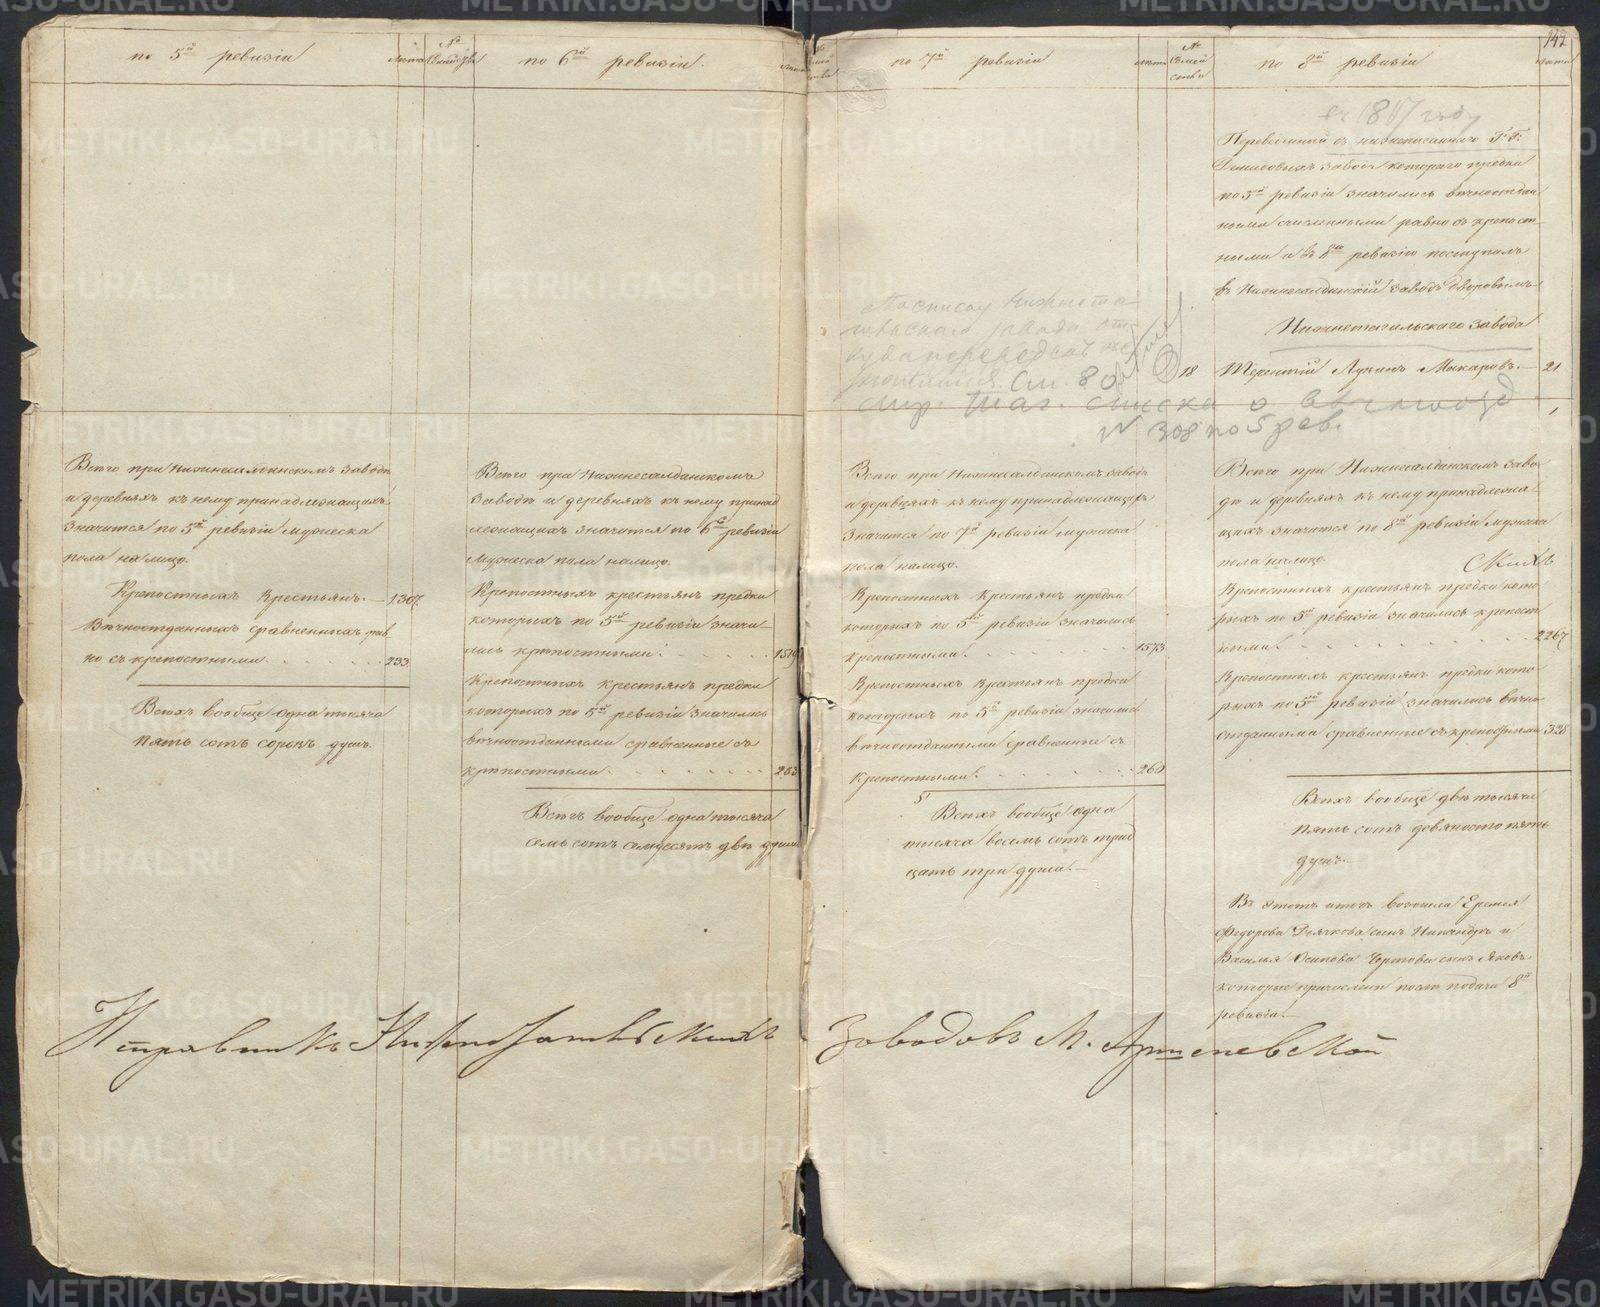 по 5й ревизіи
Лѣта
№ Семейства
по 6й ревизіи.
Лѣта
по 7й ревизіи
Лѣта
№ Семейства
по 8й ревизіи
Лѣта
142
въ 18 году
Переведенный съ нижеписаннаго Г: Г:
Демидовыхъ завода котораго предки
по 5й ревизіи значились вѣчноотдан
ными счисленными равно съ крепост
ными а въ 8ю ревизію поступилъ
въ Нижнесалдинскій заводъ дворовымъ
Нижнетагильскаго завода
18 Терентій Лупинъ Макаровъ. 21
1
См. 80
списка о
№ 308 по 5 рев.
Всѣго при Нижнесалдинскомъ заводѣ
и деревняхъ къ нему принадлежащихъ
значится по 5й ревизіи мужеска
пола на лицо.
Крѣпостныхъ Крестьянъ. 1307.
Вѣчноотданныхъ сравненныхъ рав
но съ крепостными. 233
Всѣхъ вообще одна тысяча
пять сотъ сорокъ душъ.
Всѣго при Нижнесалдинскомъ
заводѣ и деревняхъ къ нему принад
лежащихъ значится по 6й ревизіи
Мужеска пола налицо.
Крепостныхъ крестьянъ предки
которыхъ по 5й ревизіи значи
лись крѣпостными. 1509
Крепостныхъ крестьянъ предки
которыхъ по 5й ревизіи значились
вѣчноотданными сравненные съ
крѣпостными. 263
Всѣхъ вообще одна тысяча
семь сотъ семдесятъ двѣ души
Всѣго при Нижнесалдинскомъ заводѣ
и деревняхъ къ нему принадлежащихъ
значится по 7й ревизіи мужеска
пола налицо.
Крепостныхъ Крестьянъ предки
которыхъ по 5й ревизіи значились
крепостными. 1573
Крепостныхъ Крестьянъ предки
которыхъ по 5й ревизіи значились
вѣчноотданными сравненные съ
Крепостными. 260
Всѣхъ вообще одна
тысяча восемь сотъ трид
цать три души.
Всѣго при Нижнесалдинскомъ заво
дѣ и деревняхъ къ нему принадлежа
щихъ значится по 8й ревизіи мужеска
пола налицо.
Крепостныхъ крестьянъ предки кото
рыхъ по 5й ревизіи значились крепост
ными. 2267
Крепостныхъ крестьянъ предки кото
рыхъ по 5й ревизіи значились вѣчно
отданными сравненные съ крепостными 328
Всѣхъ вообще двѣ тысячи
пять сотъ девяносто пять
душъ.
Въ этотъ итогъ вошли Еремея
Федорова Дьячкова сынъ Никандръ и
Василья Осипова Чертова сынъ Яковъ
которые причислены после подачи 8й
ревизіи.
Исправникъ Нижнетагильскихъ Заводовъ М. Арцепевской